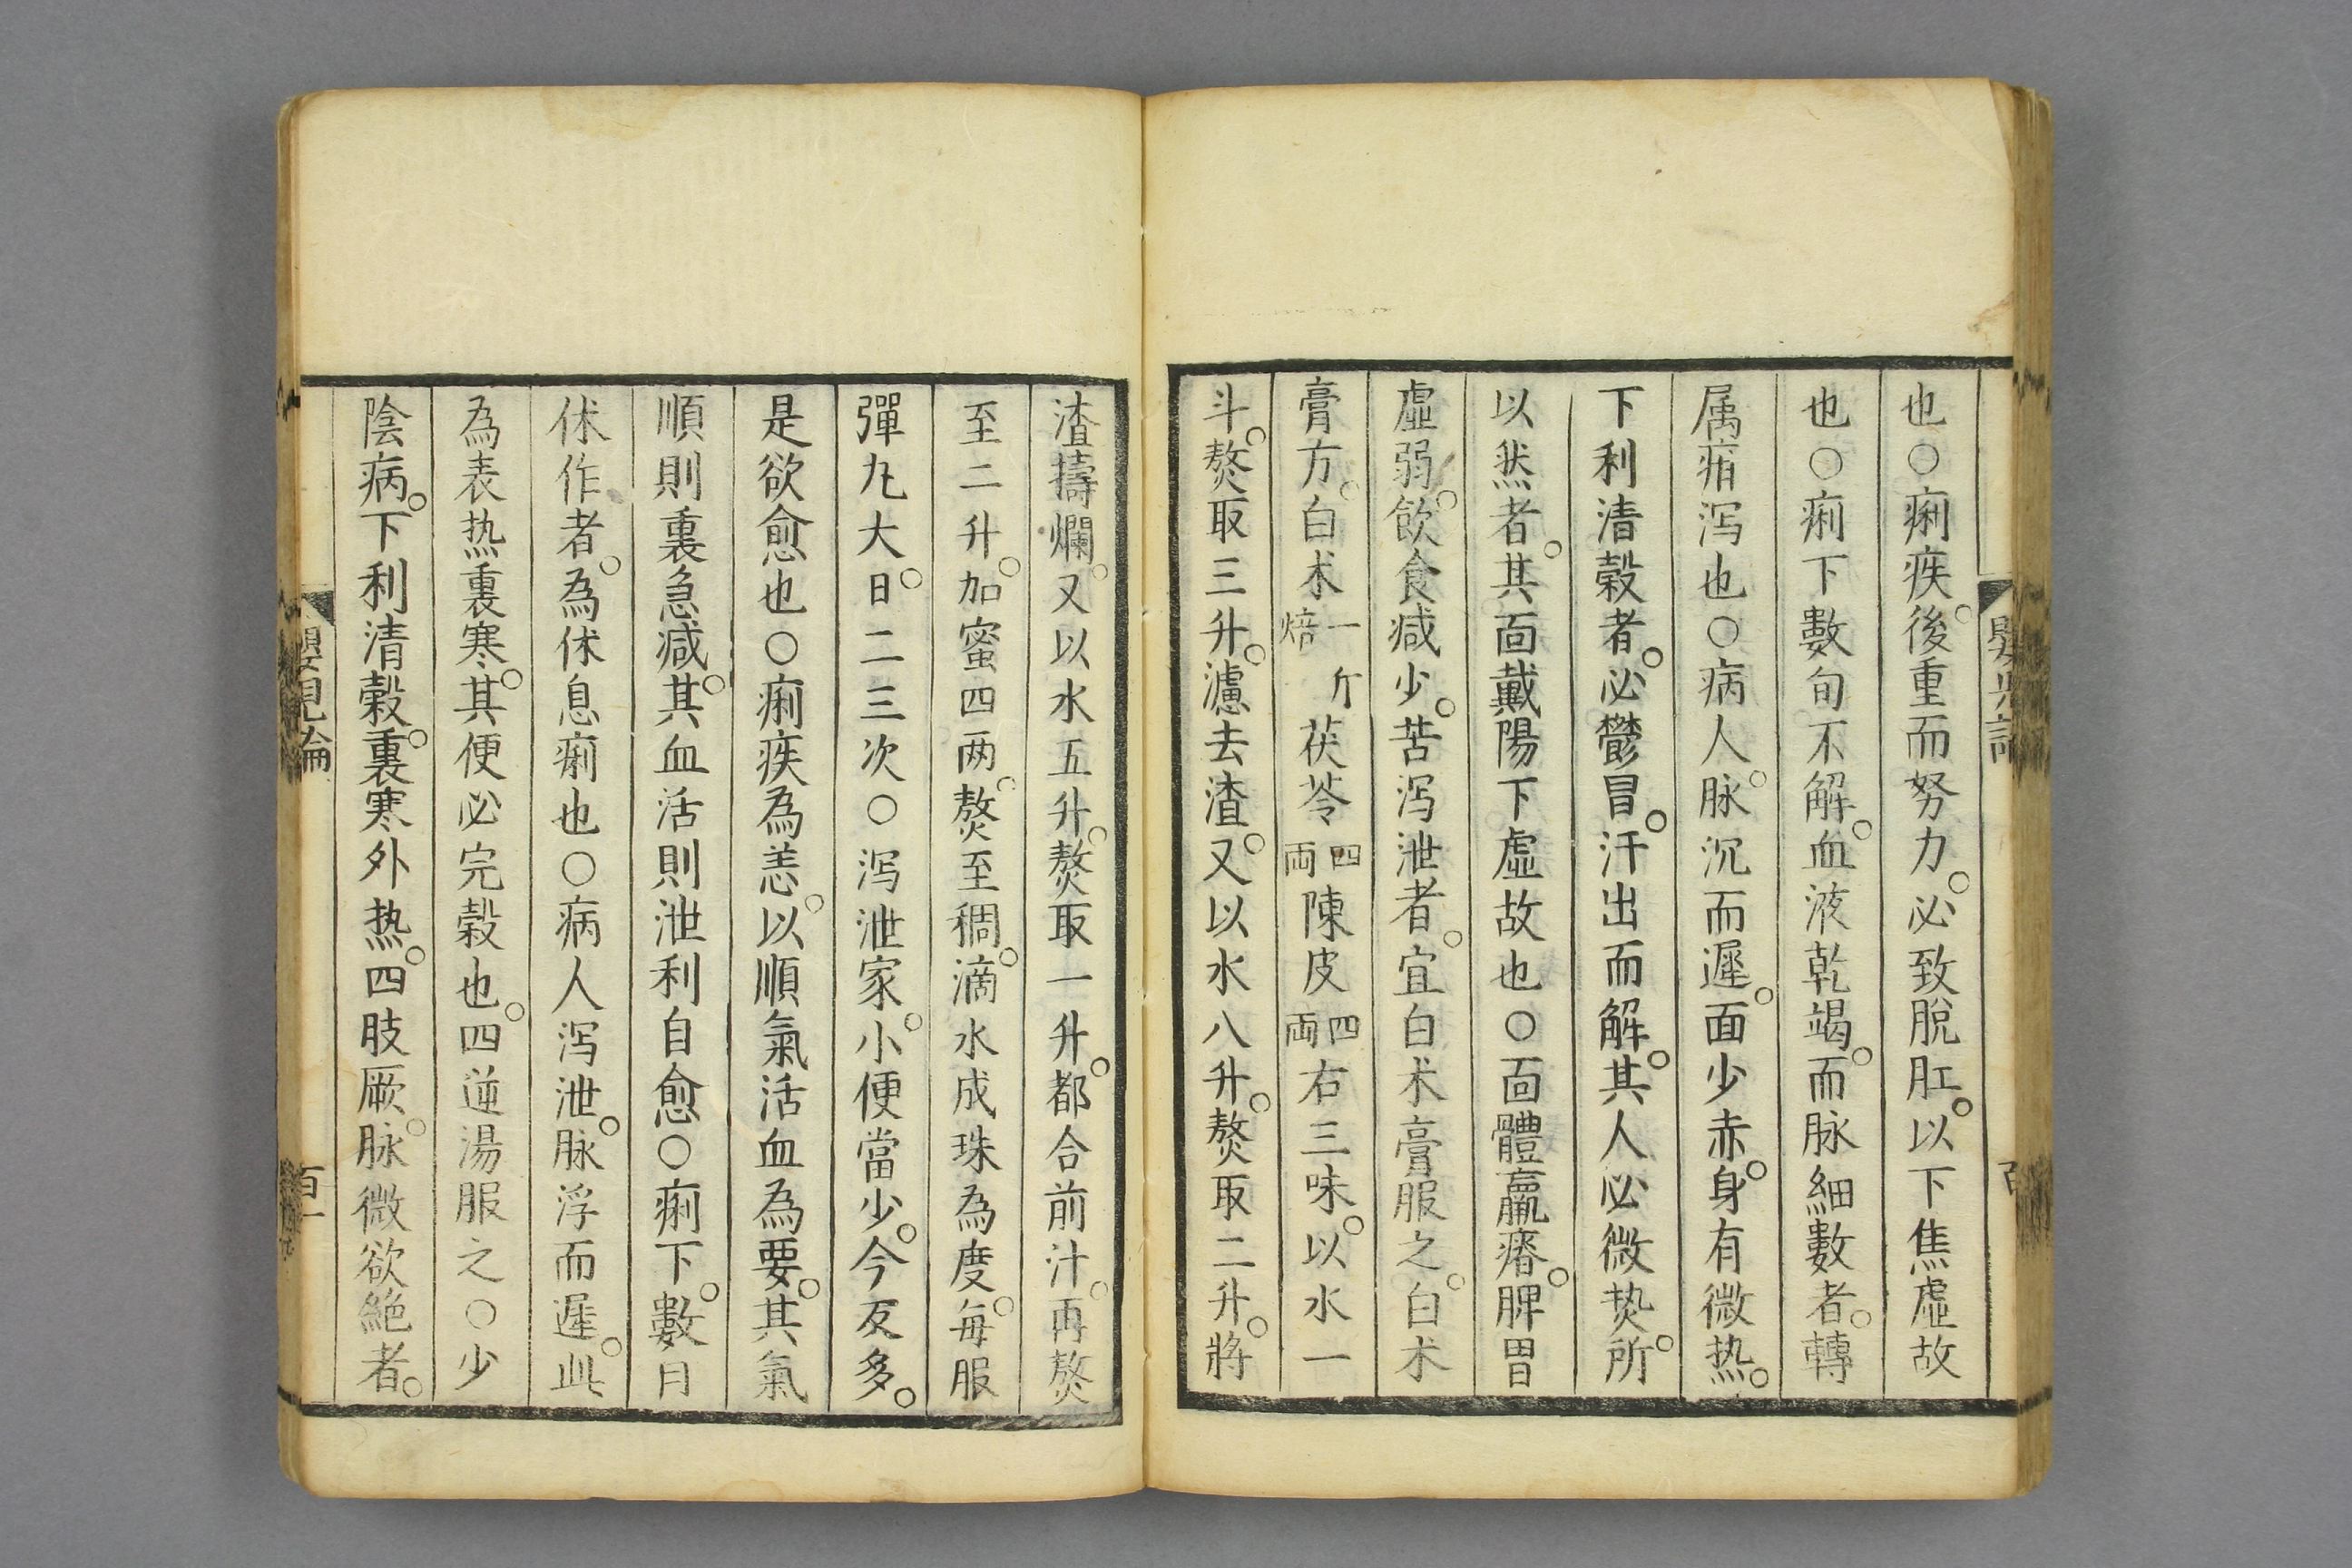 也○痢疾。後重而努力。必致脫肛。以下焦虛故
也○痢下數旬不解。血液乾竭。而脉細數者。轉
属疳泻也○病人脉。沉而遲。面少赤。身有微热。
下利清穀者。必鬱冒。汗出而解。其人必微热。所
以然者。其面戴陽下虛故也○面體羸瘠。脾胃
虛弱。飲食减少。苦泻泄者。宜白术膏服之。白术
膏方。白术一斤焙茯苓四両陳皮四両右三味。以水一
斗。熬取三升。濾去渣。又以水八升。熬取二升。將
渣擣爛。又以水五升。熬取一升。都合前汁。再熬
至二升。加蜜四两。熬至稠。滴水成珠為度。每服
彈丸大。日二三次○泻泄家。小便當少。今反多。
是欲愈也○痢疾為恙。以順氣活血為要。其氣
順則裏急减。其血活則泄利自愈○痢下。數月
休作者。為休息痢也○病人泻泄。脉浮而遲。此
為表热裏寒。其便必完穀也。四逆湯服之○少
陰病。下利清穀。裏寒外热。四肢厥。脉微欲絶者。
嬰児論
百一